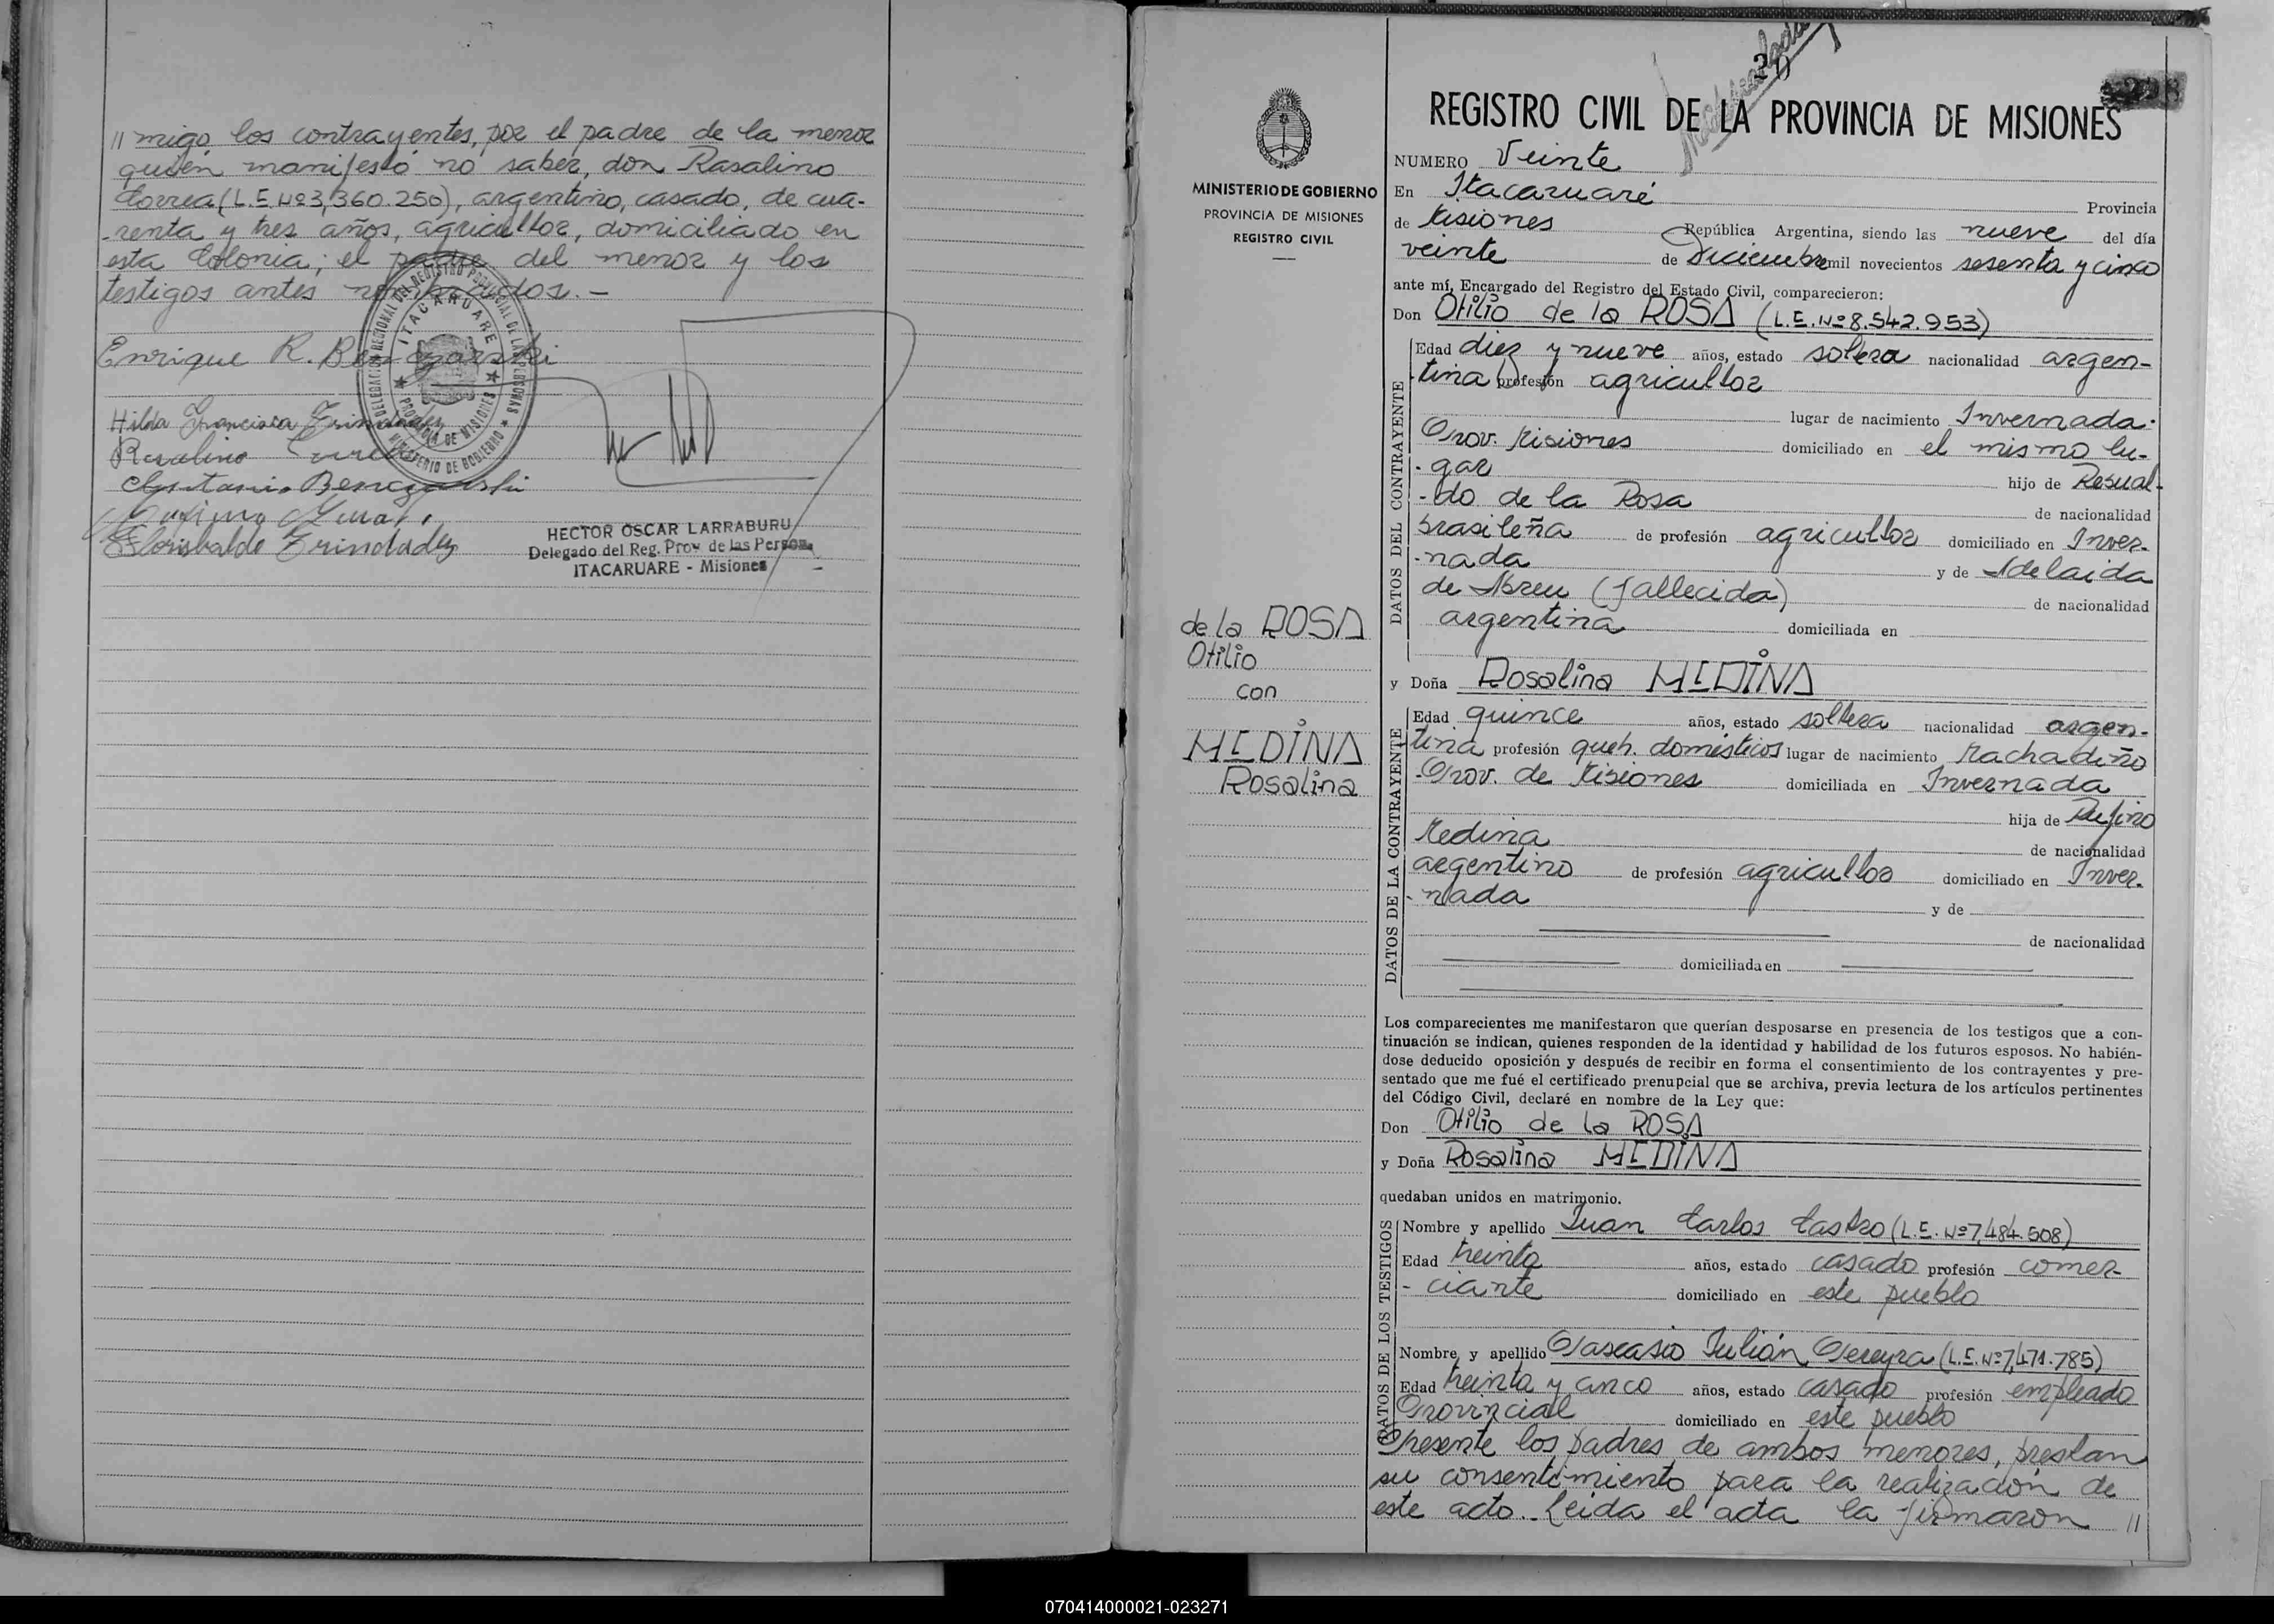 // migo los contrayentes, por el padre de la menor
quién manifestó no saber, don Rasalino
Correa (L.E. Nº 3,360.250), argentino, casado, de cua-
-renta y tres años, agricultor, domiciliado en
esta Colonia; el padre del menor y los
testigos antes nombrados.-
Enrique R.
Hilda Francisca Trindade
Rosalino Correa
Máximo
Florisbaldo Trindade
DELEGACION REGIONAL DEL REGISTRO PROVINCIAL DE LAS PERSONAS
ITACARUARE
PROVINCIA DE MISIONES
MINISTERIO DE GOBIERNO
HECTOR OSCAR LARRABURU
Delegado del Reg. Prov. de las Person.
ITACARUARE - Misiones
MINISTERIO DE GOBIERNO
PROVINCIA DE MISIONES
REGISTRO CIVIL
de la ROSA
Otilio
con
MEDINA
Rosalina
20
REGISTRO CIVIL DE LA PROVINCIA DE MISIONES
NUMERO Veinte
En Itacaruaré Provincia
de Misiones República Argentina, siendo las nueve del día
veinte de Diciembre mil novecientos sesenta y cinco
ante mí, Encargado del Registro del Estado Civil, comparecieron:
Don Otilio de la ROSA (L.E. Nº 8.542.953)
DATOS DEL CONTRAYENTE
Edad diez y nueve años, estado soltero nacionalidad argen-
-tina profesión agricultor
lugar de nacimiento Invernada-
Prov. Misiones domiciliado en el mismo lu-
-gar hijo de Rosual-
-do de la Rosa de nacionalidad
brasileña de profesión agricultor domiciliado en Inver-
-nada y de Adelaida
de Abreu (fallecida) de nacionalidad
argentina domiciliada en
y Doña Rosalina MEDINA
DATOS DE LA CONTRAYENTE
Edad quince años, estado soltera nacionalidad argen-
tina profesión queh. domésticos lugar de nacimiento Machadiño
-Prov. de Misiones domiciliada en Invernada
hija de Rufino
Medina de nacionalidad
argentino de profesión agricultor domiciliado en Inver-
-nada y de
de nacionalidad
domiciliada en
Los comparecientes me manifestaron que querían desposarse en presencia de los testigos que a con-
tinuación se indican, quienes responden de la identidad y habilidad de los futuros esposos. No habién-
dose deducido oposición y después de recibir en forma el consentimiento de los contrayentes y pre-
sentado que me fué el certificado prenupcial que se archiva, previa lectura de los artículos pertinentes
del Código Civil, declaré en nombre de la Ley que:
Don Otilio de la ROSA
y Doña Rosalina MEDINA
quedaban unidos en matrimonio.
DATOS DE LOS TESTIGOS
Nombre y apellido Juan Carlos Castro (L.E. Nº 7,484.508)
Edad treinta años, estado casado profesión comer-
-ciante domiciliado en este pueblo
Nombre y apellido Pascasio Julián Pereyra (L.E. Nº 7,471.785)
Edad treinta y cinco años, estado casado profesión empleado
Provincial domiciliado en este pueblo
Presente los padres de ambos menores, prestan
su consentimiento para la realización de
este acto.- Leida el acta la firmaron //
070414000021-023271